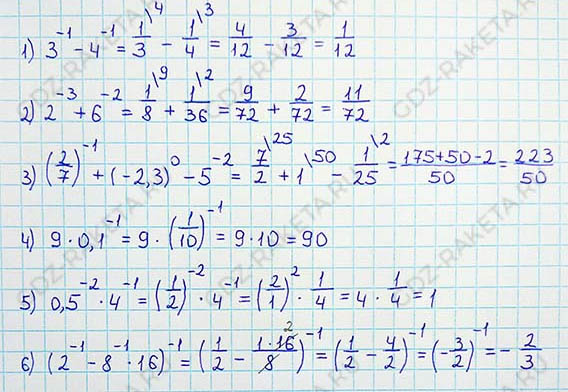 1) 3^-1 - 4^-1 = 1/3\4 - 1/4\3 = 4/12 - 3/12 = 1/12
2) 2^-3 + 6^-2 = 1/8\9 + 1/36\2 = 9/72 + 2/72 = 11/72
3) (2/7)^-1 + (-2,3)^0 - 5^-2 = 7/2\25 + 1\50 - 1/25\2 = 175+50-2/50 = 223/50
4) 9 · 0,1^-1 = 9 · (1/10)^-1 = 9 · 10 = 90
5) 0,5^-2 · 4^-1 = (1/2)^-2 · 4^-1 = (2/1)^2 · 1/4 = 4 · 1/4 = 1
6) (2^-1 - 8^-1 · 16)^-1 = (1/2 - 1·16 2/8)^-1 = (1/2 - 4/2)^-1 = (-3/2)^-1 = - 2/3
GDZ-RAKETA.RU